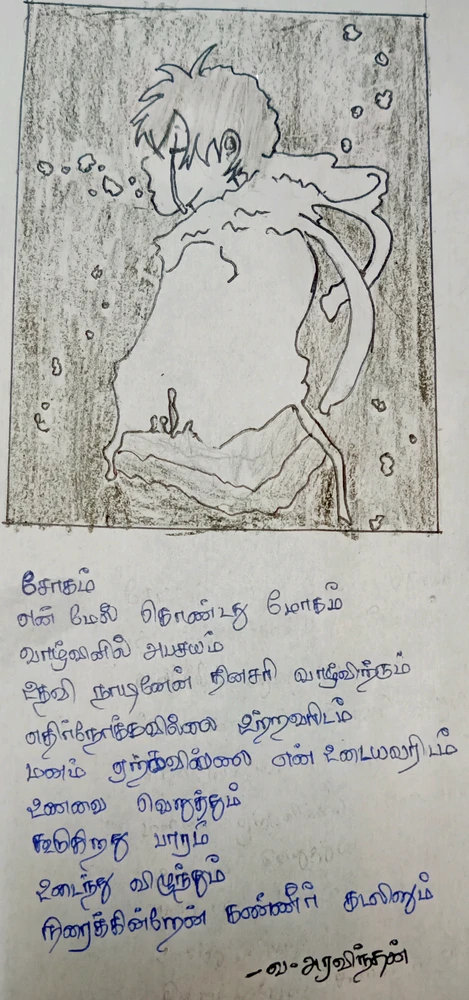 சோகம்
என் மேல் கொண்டது மோகம்
வாழ்வினில் அபசயம்
உதவி நாடினேன் தினசரி வாழ்விற்கும்
எதிர்நோக்கவில்லை உற்றவரிடம்
மனம் ஏற்கவில்லை என் உடையவரிடம்
உணவை வெறுத்தும்
கூடுகிறது பாரம்
உடைந்து விழுந்தும்
நிரைக்கின்றேன் கண்ணீர் கடலினும்
-வ. அரவிந்தன்